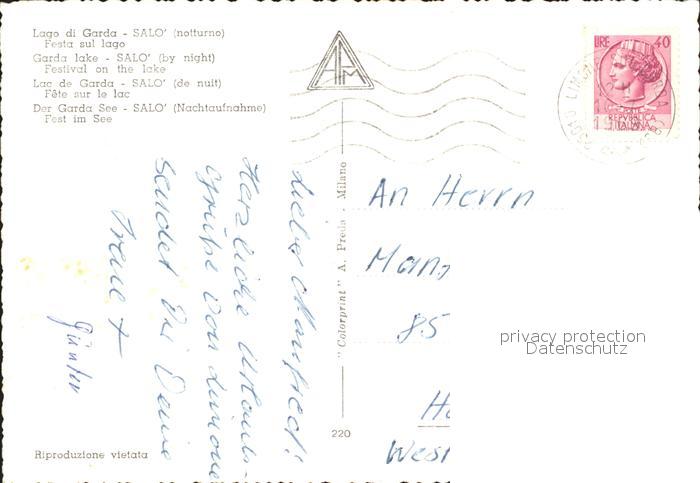 Lago di Garda - SALO' (notturno)
Festa sul lago
Garda lake - SALO' (by night)
Festival on the lake
Lac de Garda - SALO' (de nuit)
Fête sur le lac
Der Garda See - SALO' (Nachtaufnahme)
Fest im See
APM
LIRE 40
REPVBBLICA
ITALIANA
Lieber Manfred!
Herzliche Urlaubs-
grüße von Limone
sendet Dir Deine
+
Günter
"Colorprint" A. Preda - Milano
220
An Herrn
Man
85
H
West
privacy protection
Datenschutz
Riproduzione vietata